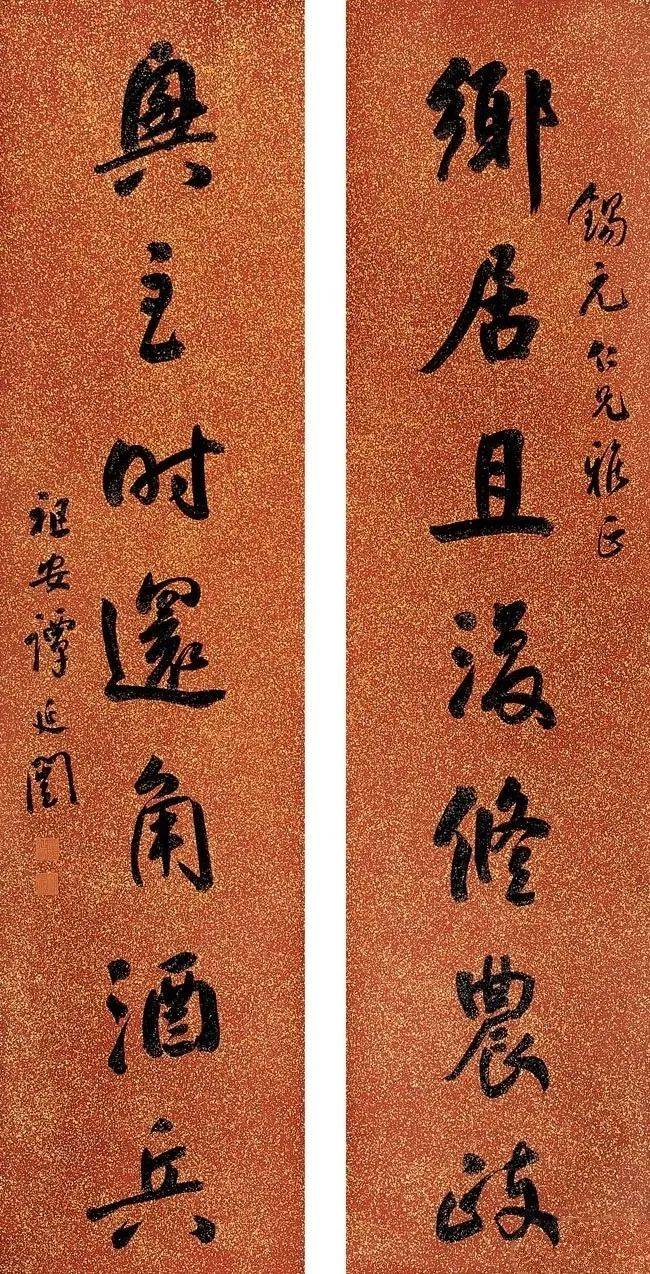 錫元仁兄雅正
鄉居且復修農政
興至时還角酒兵
祖安譚延闓